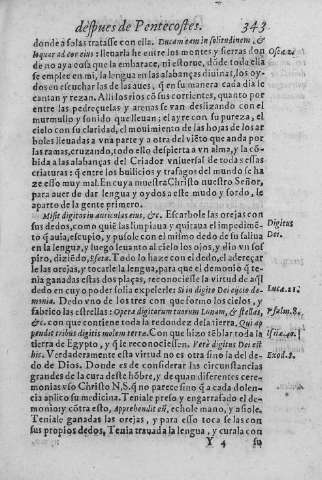 despues de Pentecostes. 343
donde a solas tratasse con ella. Ducam eam in solitudinem, &
loquar ad cor eius: lleuarla he entre los montes y sierras don Oseæ.2.
de no aya cosa que la embarace, ni estorue, dōde toda ella
se emplee en mi, la lengua en las alabanças diuinas, los oy-
dos en escuchar las de las aues, q̃ en su manera cada dia le
cantan y rezan. Alli los rios cō sus corrientes, quanto por
entre las pedreçuelas y arenas se van deslizando con el
murmullo y sonido que lleuan; el ayre con su pureza, el
cielo con su claridad, el mouimiento de las hojas de los ar
boles lleuadas a vna parte y a otra del viēto que anda por
las ramas, cruzando, todo ello despierta a vn alma, y la cō-
bida a las alabanças del Criador vniuersal de todas essas
criaturas: q̃ entre los bullicios y trafagos del mundo se ha
ze esso muy mal. En cuya muestra Christo nuestro Señor,
para auer de dar lengua y oydos a este mudo y sordo, le
aparto de la gente primero.
Misit digitos in auriculas eius, &c. Escarbole las orejas con
sus dedos, como quiẽ las limpiaua y quitaua el impedimẽ- Digitus
to q̃ auia, escupio, y pusole con el mismo dedo de su saliua Dei.
en la lengua, y luego leuanto al cielo los ojos, y dio vn sos
piro, diziẽdo, Efeta. Todo lo haze con el dedo, el adereçar
le las orejas, y tocarle la lengua, para que el demonio q̃ te-
nia ganadas estas dos plaças, reconociesse la virtud de aq̃l
dedo en cuyo poder solia expelerles Si in digito Dei eijcio dæ Lucæ.11.
monia. Dedo vno de los tres con que formo los cielos, y
fabrico las estrellas: Opera digitorum tuorum Lunam, & stellas, Psalm.8.
&c. con que contiene toda la redondez de la tierra, Qui ap
pendit tribus digitis molem terræ. Con que hizo tẽblar toda la Isaiæ.40.
tierra de Egypto, y q̃ le reconociessen. Verè digitus Dei est
hic. Verdaderamente esta virtud no es otra sino la del de- Exod.8.
do de Dios. Donde es de considerar las circunstancias
grandes de la cura deste hōbre, y de quan diferentes cere-
monias vso Christo N.S. q̃ no parece sino q̃ a cada dolen-
cia aplico su medicina. Teniale preso y engarrafado el de-
monio y cōtra esto, Apprehendit eū, echole mano, y asiole.
Teniale ganadas las orejas, y para esso toca se las con
sus propios dedos, Tenia trauada la lengua, y curala con
Y 4 su